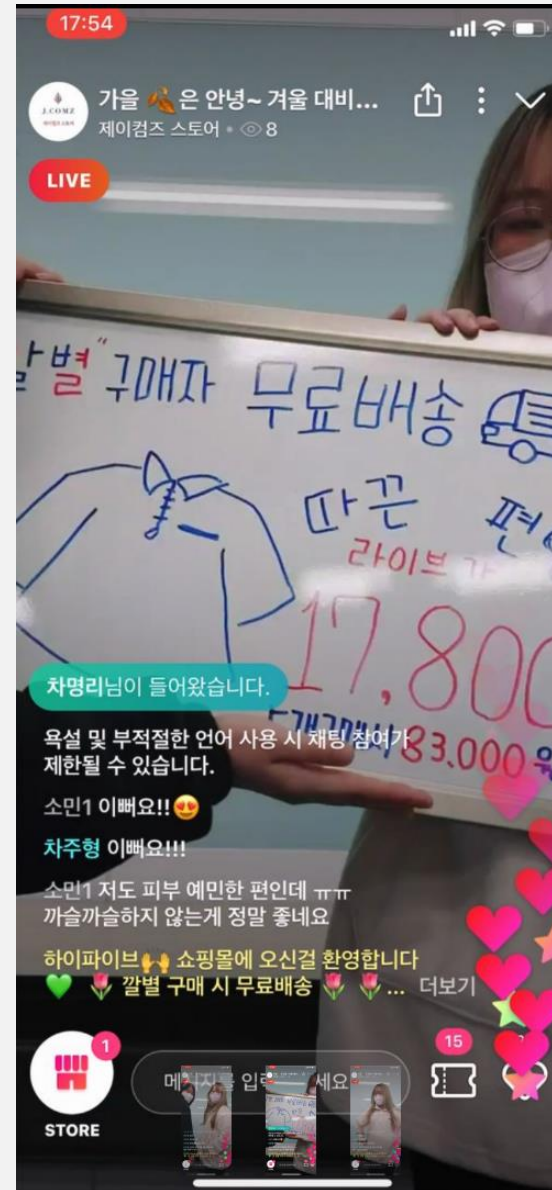 17:54
J.COMZ
가을 🍂은 안녕~ 겨울 대비...
제이컴즈 스토어 • 8
LIVE
깔별" 구매자 무료배송
따끈
라이브가
17,800
5개구매시 83,000원
차명리님이 들어왔습니다.
욕설 및 부적절한 언어 사용 시 채팅 참여가
제한될 수 있습니다.
소민1 이뻐요!!😍
차주형 이뻐요!!!
소민1 저도 피부 예민한 편인데 ㅠㅠ
까슬까슬하지 않는게 정말 좋네요
하이파이브🙌 쇼핑몰에 오신걸 환영합니다
💚 🌷 깔별 구매 시 무료배송 🌷 🌷 ... 더보기
1
STORE
15